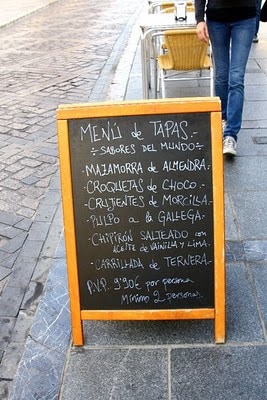 MENÚ de TAPAS.
÷ SABORES DEL MUNDO ÷
-MAZAMORRA de ALMENDRA.
-CROQUETAS de CHOCO.-
-CRUJIENTES de MORCILLA.
-PULPO a la GALLEGA-
-CHIPIRÓN SALTEADO con
ACEITE de VAINILLA Y LIMA.
-CARRILLADA de TERNERA.
P.V.P. 9'90€ por persona
Mínimo 2 personas.